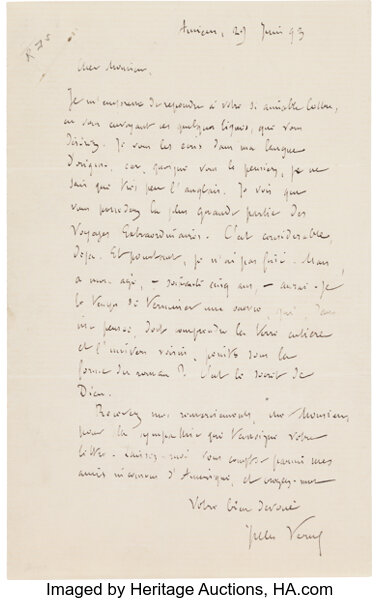 R. 75
Amiens, 29 Juin 93
Mon Monsieur,
Je m'empresse de répondre à votre si aimable lettre,
en vous envoyant ces quelques lignes, que vous
désirez. Je vous les écris dans ma langue
d'origine, car, quoique vous le pensiez, je ne
sais que très peu l'anglais. Je vois que
vous possédez la plus grande partie des
Voyages Extraordinaires. C'est considérable,
déjà. Et pourtant, je n'ai pas fini. Mais,
à mon âge, – soixante cinq ans, – aurai-je
le temps de terminer une œuvre, qui, dans
ma pensée, doit comprendre la terre entière
et l'univers voisin, points sous la
forme du roman ? C'est le secret de
Dieu.
Recevez mes remerciements, Monsieur,
pour la sympathie que témoigne votre
lettre. Laissez-moi vous compter parmi mes
amis inconnus d'Amérique, et croyez-moi
Votre bien dévoué
Jules Verne
Imaged by Heritage Auctions, HA.com